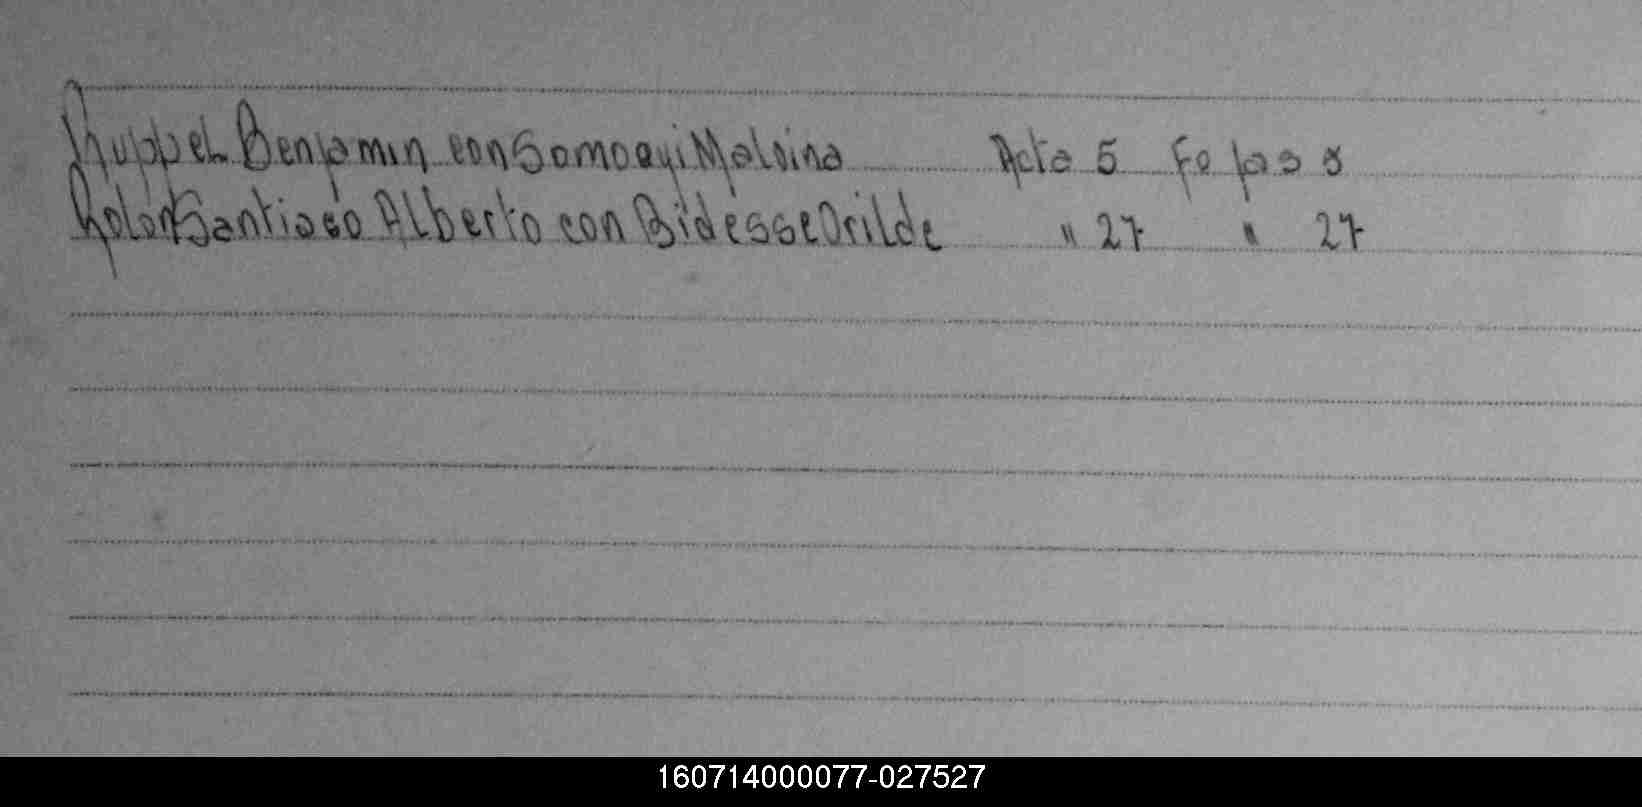 Ruppel Benjamin con Somoayi Malvina Acta 5 Fo jas 5
Rolón Santiago Alberto con Bidesse Orilde " 27 " 27
160714000077-027527